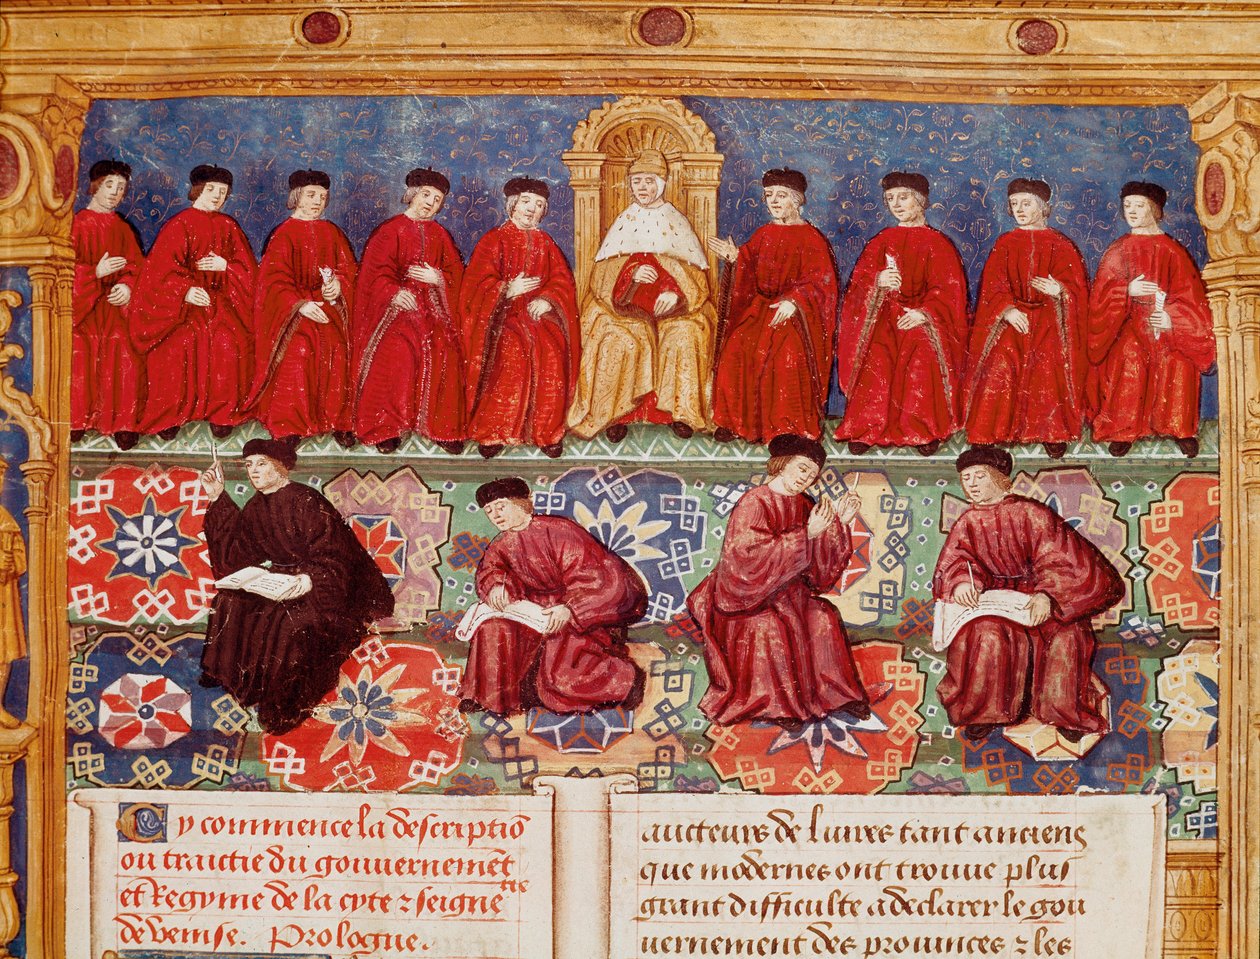 Cy commence la descriptiõ
ou traictie du gouvernemẽt
et Regyme de la cyte z seigne^rie
de venise. Prologue.
aucteurs de livres tant anciens
que modernes ont trouve plus
grant difficulte a declarer le gou
vernement des provinces z les